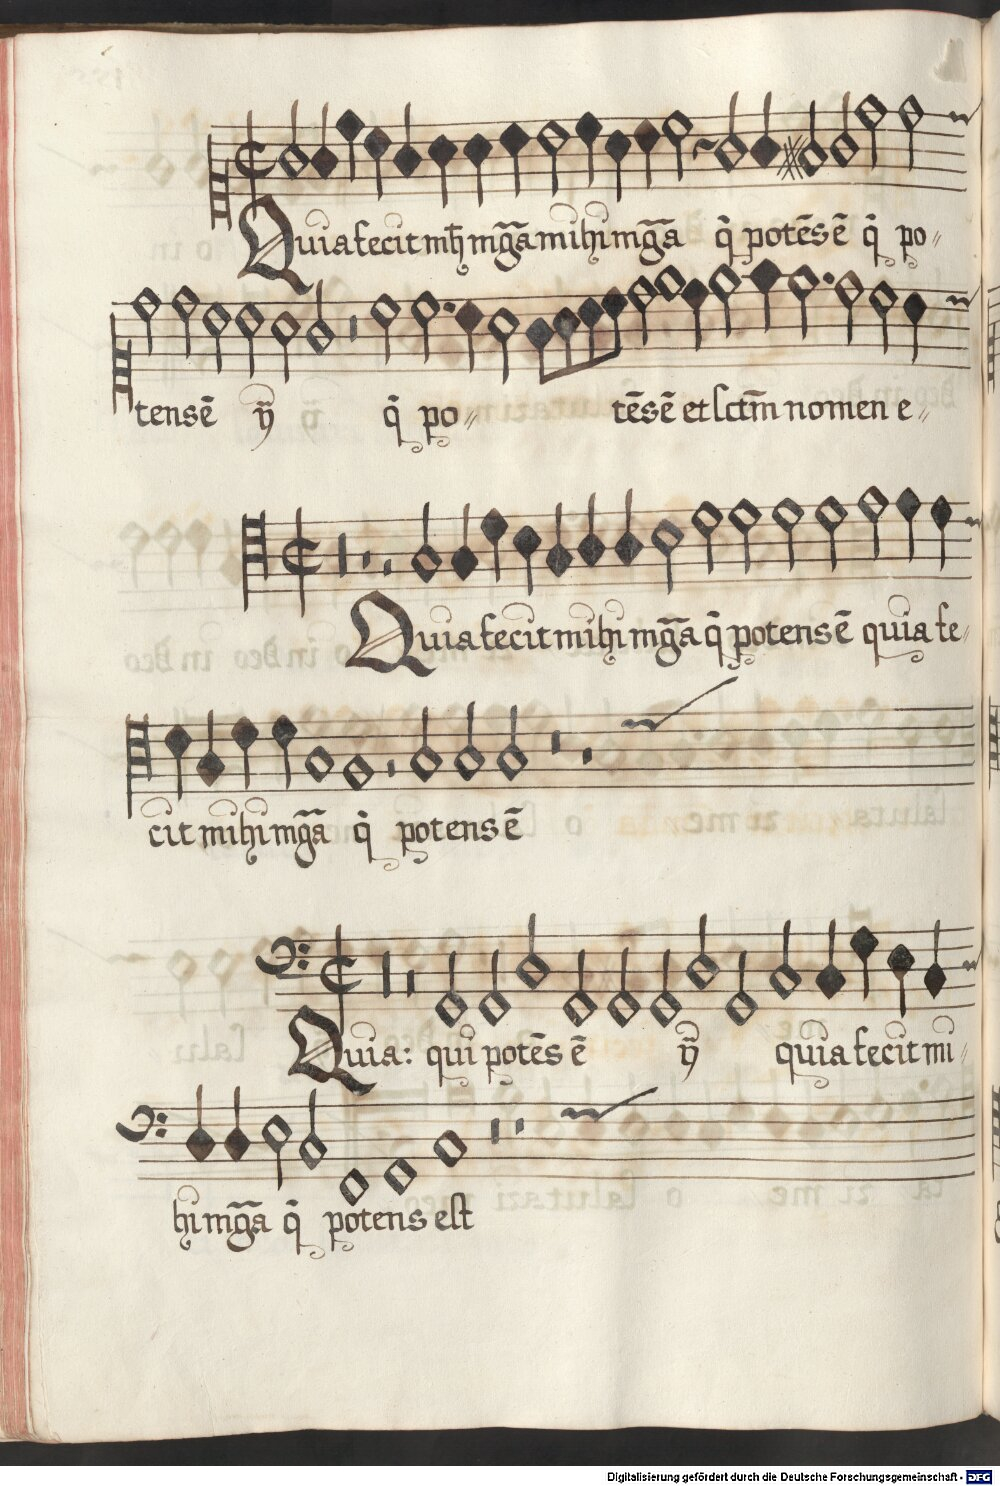 Quia fecit mh̄ mg̃a mihi mg̃a q̇ potēs ē q̇ po〃
tens ē ÿ q̇ po〃 tēs ē et sctm̄ nomen e〃
Quia fecit mihi mg̃a q̇ potens ē quia fe〃
cit mihi mg̃a q̇ potens ē
Quia: qui potēs ē ÿ quia fecit mi〃
hi mg̃a q̇ potens est
Digitalisierung gefördert durch die Deutsche Forschungsgemeinschaft - DFG